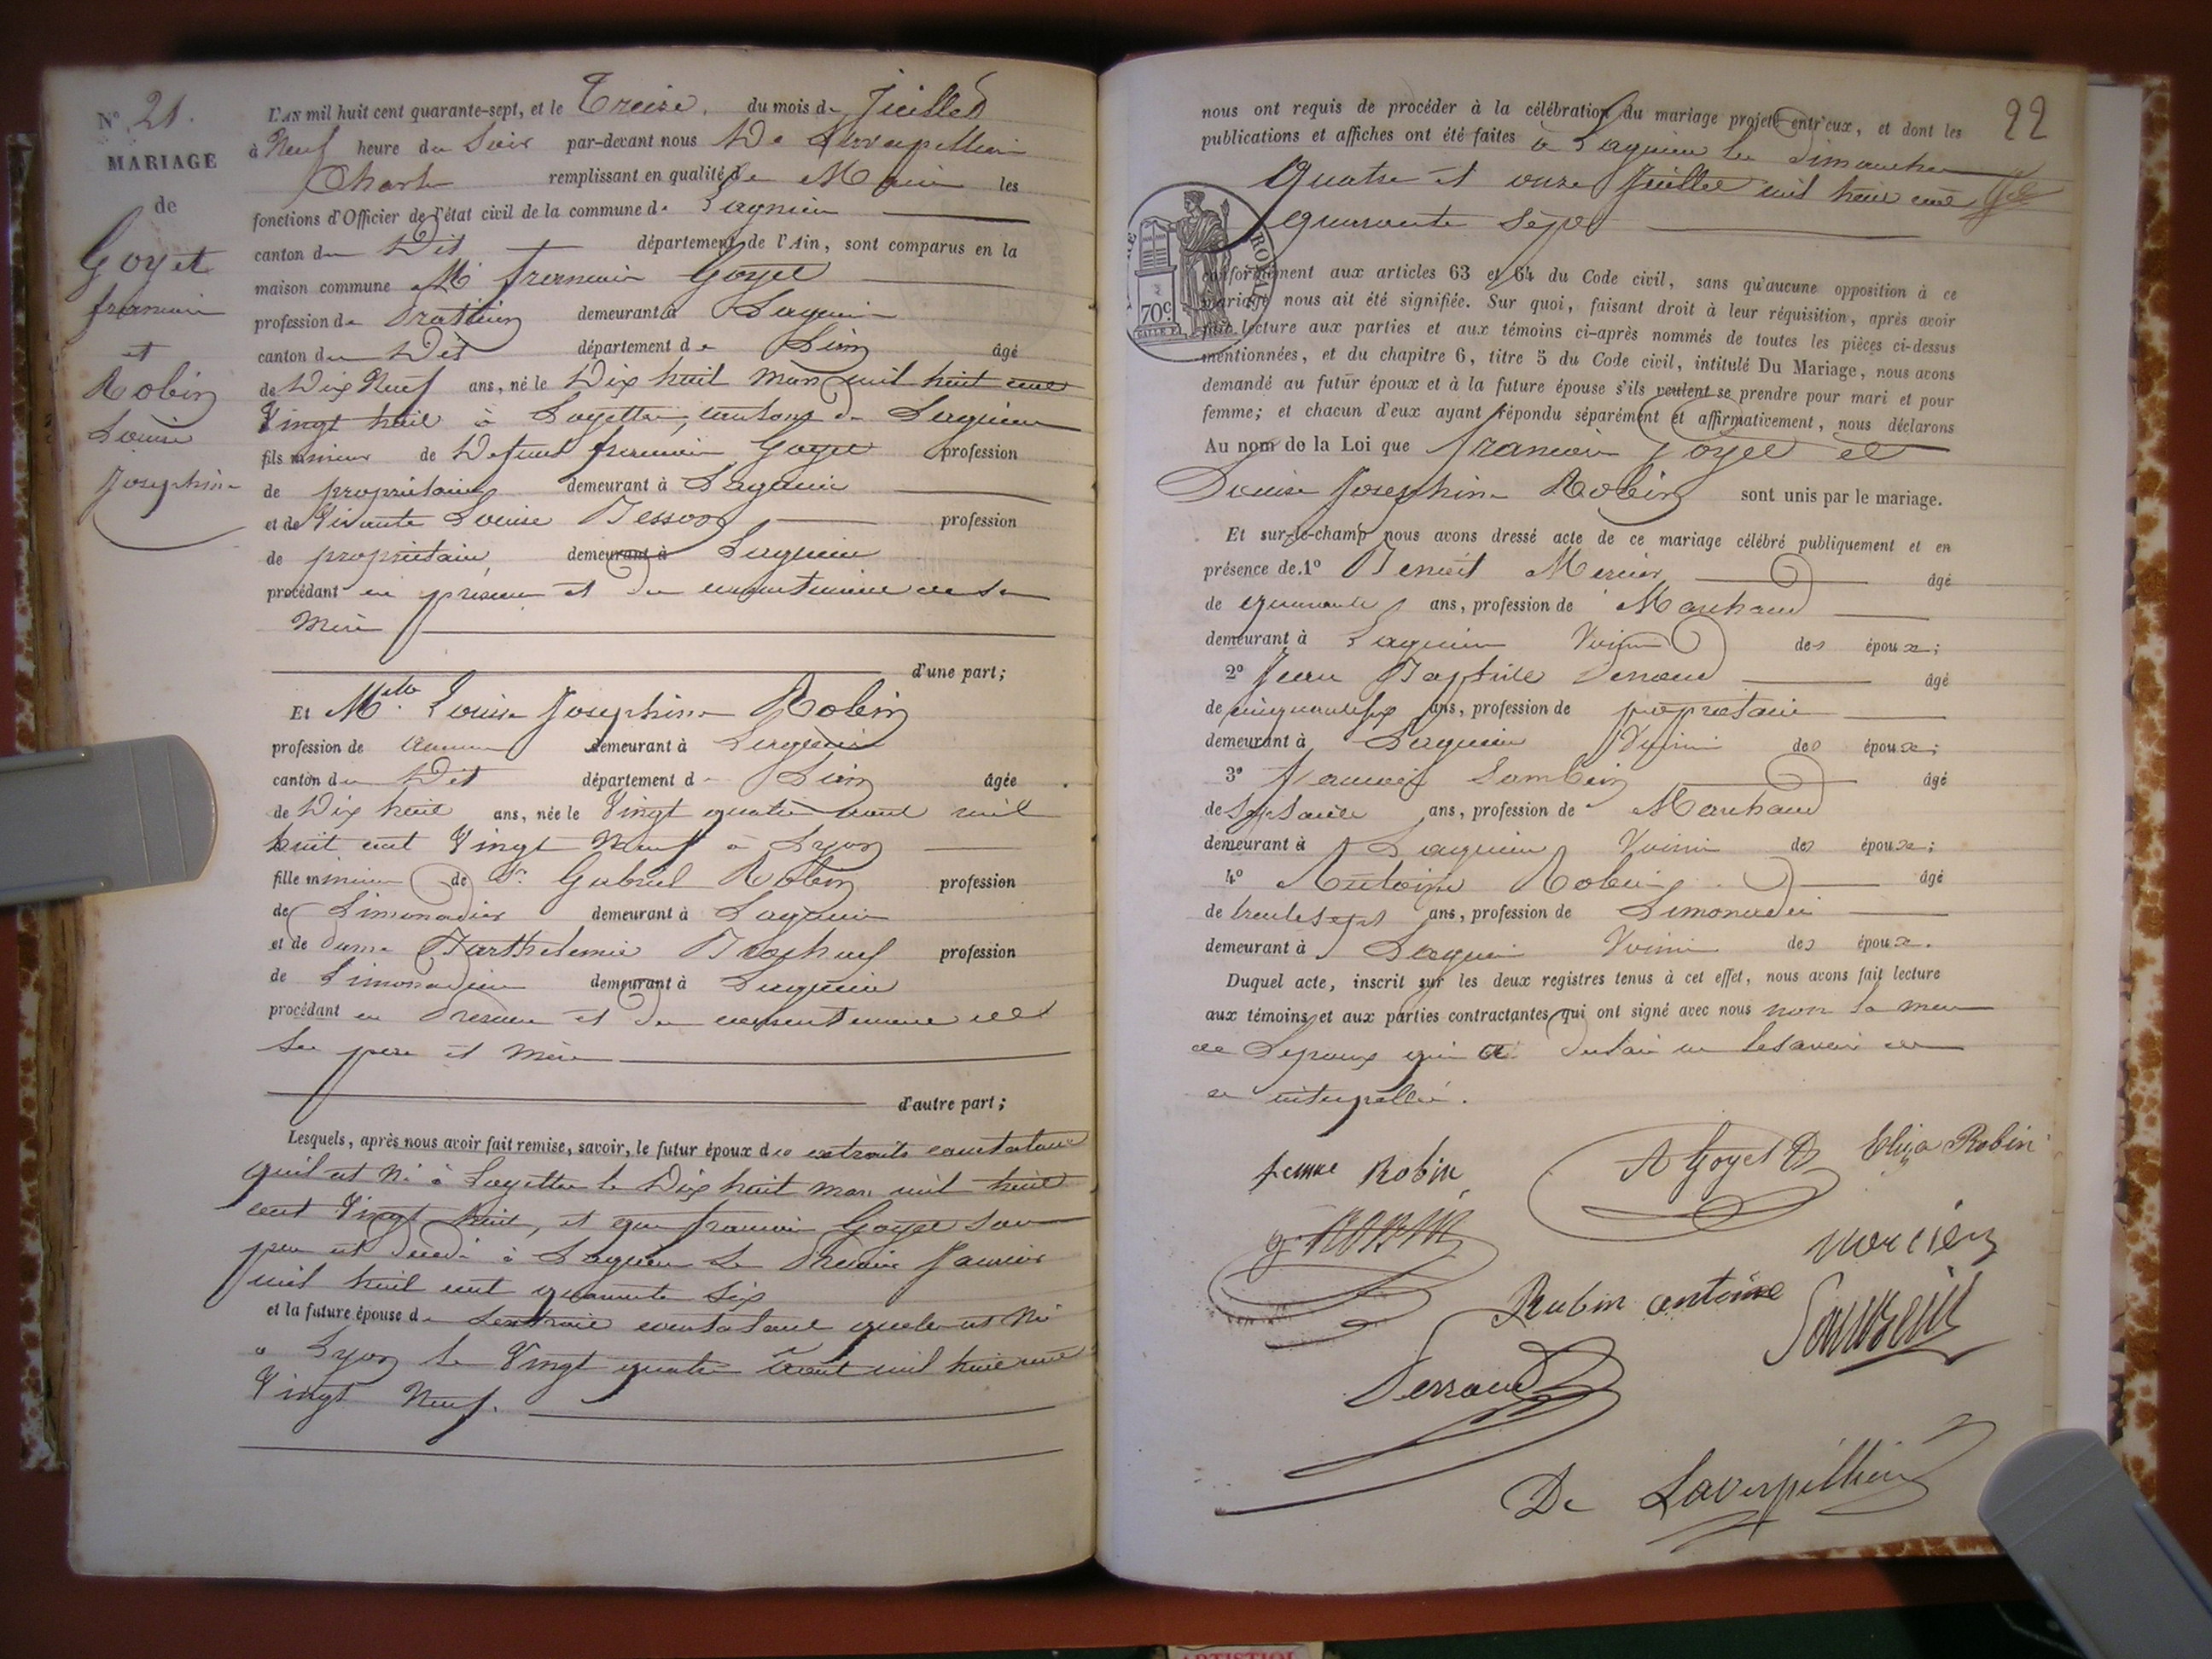 N° 21.
MARIAGE
de
Goyet
françois
et
Robin
Louise
Josephine
L'AN mil huit cent quarante-sept, et le Treize du mois de Juillet
à Neuf heure du Soir par-devant nous De Laverpillière
Charles remplissant en qualité de Maire les
fonctions d'Officier de l'état civil de la commune de Lagnieu
canton du Dit département de l'Ain, sont comparus en la
maison commune Mr françois Goyet
profession de demeurant à Lagnieu
canton du Dit département de L'ain âgé
de Dix Neuf ans, né le Dix huit Mars mil huit cent
Vingt huit à Loyettes, canton de Lagnieu
fils mineur de Defunt françois Goyet profession
de propriétaire demeurant à Lagnieu
et de Vivante Louise Besson profession
de propriétaire demeurant à Lagnieu
procédant en présence et du consentement de sa
Mère
d'une part;
Et Mlle Louise Josephine Robin
profession de aucune demeurant à Lagnieu
canton du Dit département de L'ain âgée
de Dix huit ans, née le Vingt quatre aout mil
huit cent Vingt Neuf à Lyon
fille mineure de Sr Gabriel Robin profession
de Limonadier demeurant à Lagnieu
et de dame Barthelemie profession
de Limonadière demeurant à Lagnieu
procédant en présence et du consentement de
ses père et mère
d'autre part;
Lesquels, après nous avoir fait remise, savoir, le futur époux des extraits constatant
qu'il est Né à Loyettes le Dix huit Mars mil huit
cent Vingt huit, et que françois Goyet son
père est décédé à Lagnieu le Janvier
mil huit cent quarante six
et la future épouse de L'extrait constatant quelle est Née
à Lyon le Vingt quatre aout mil huit cent
Vingt Neuf.
22
nous ont requis de procéder à la célébration du mariage projeté entr'eux, et dont les
publications et affiches ont été faites à Lagnieu les dimanches
Quatre et onze Juillet mil huit cent
quarante sept
ROYAL
70c.
conformément aux articles 63 et 64 du Code civil, sans qu'aucune opposition à ce
mariage nous ait été signifiée. Sur quoi, faisant droit à leur réquisition, après avoir
fait lecture aux parties et aux témoins ci-après nommés de toutes les pièces ci-dessus
mentionnées, et du chapitre 6, titre 5 du Code civil, intitulé Du Mariage, nous avons
demandé au futur époux et à la future épouse s'ils veulent se prendre pour mari et pour
femme; et chacun d'eux ayant répondu séparément et affirmativement, nous déclarons
Au nom de la Loi que françois Goyet et
Louise Josephine Robin sont unis par le mariage.
Et sur-le-champ nous avons dressé acte de ce mariage célébré publiquement et en
présence de 1° Benoit Mercier âgé
de quarante ans, profession de Marchand
demeurant à Lagnieu Voisin des époux;
2° Jean Baptiste Perraud âgé
de cinquante six ans, profession de propriétaire
demeurant à Lagnieu Voisin des époux;
3° françois âgé
de ans, profession de Marchand
demeurant à Lagnieu Voisin des époux;
4° Antoine Robin âgé
de trente sept ans, profession de Limonadier
demeurant à Lagnieu Voisin des époux.
Duquel acte, inscrit sur les deux registres tenus à cet effet, nous avons fait lecture
aux témoins et aux parties contractantes qui ont signé avec nous non la mère
de L'epoux qui a déclaré ne le savoir de
ce interpellée.
femme Robin
Goyet
Eliza Robin
g. ROBIN
mercier
Robin antoine
Perraud
De Laverpillière